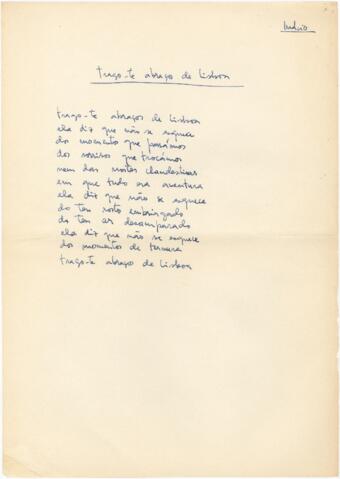 trago-te abraços de Lisboa
trago-te abraços de Lisboa
ela diz que não se esquece
do momento que passámos
dos sorrisos que trocámos
nem das noites clandestinas
em que tudo era aventura
ela diz que não se esquece
do teu rosto embriagado
do teu ar desamparado
ela diz que não se esquece
dos momentos de ternura
trago-te abraços de Lisboa